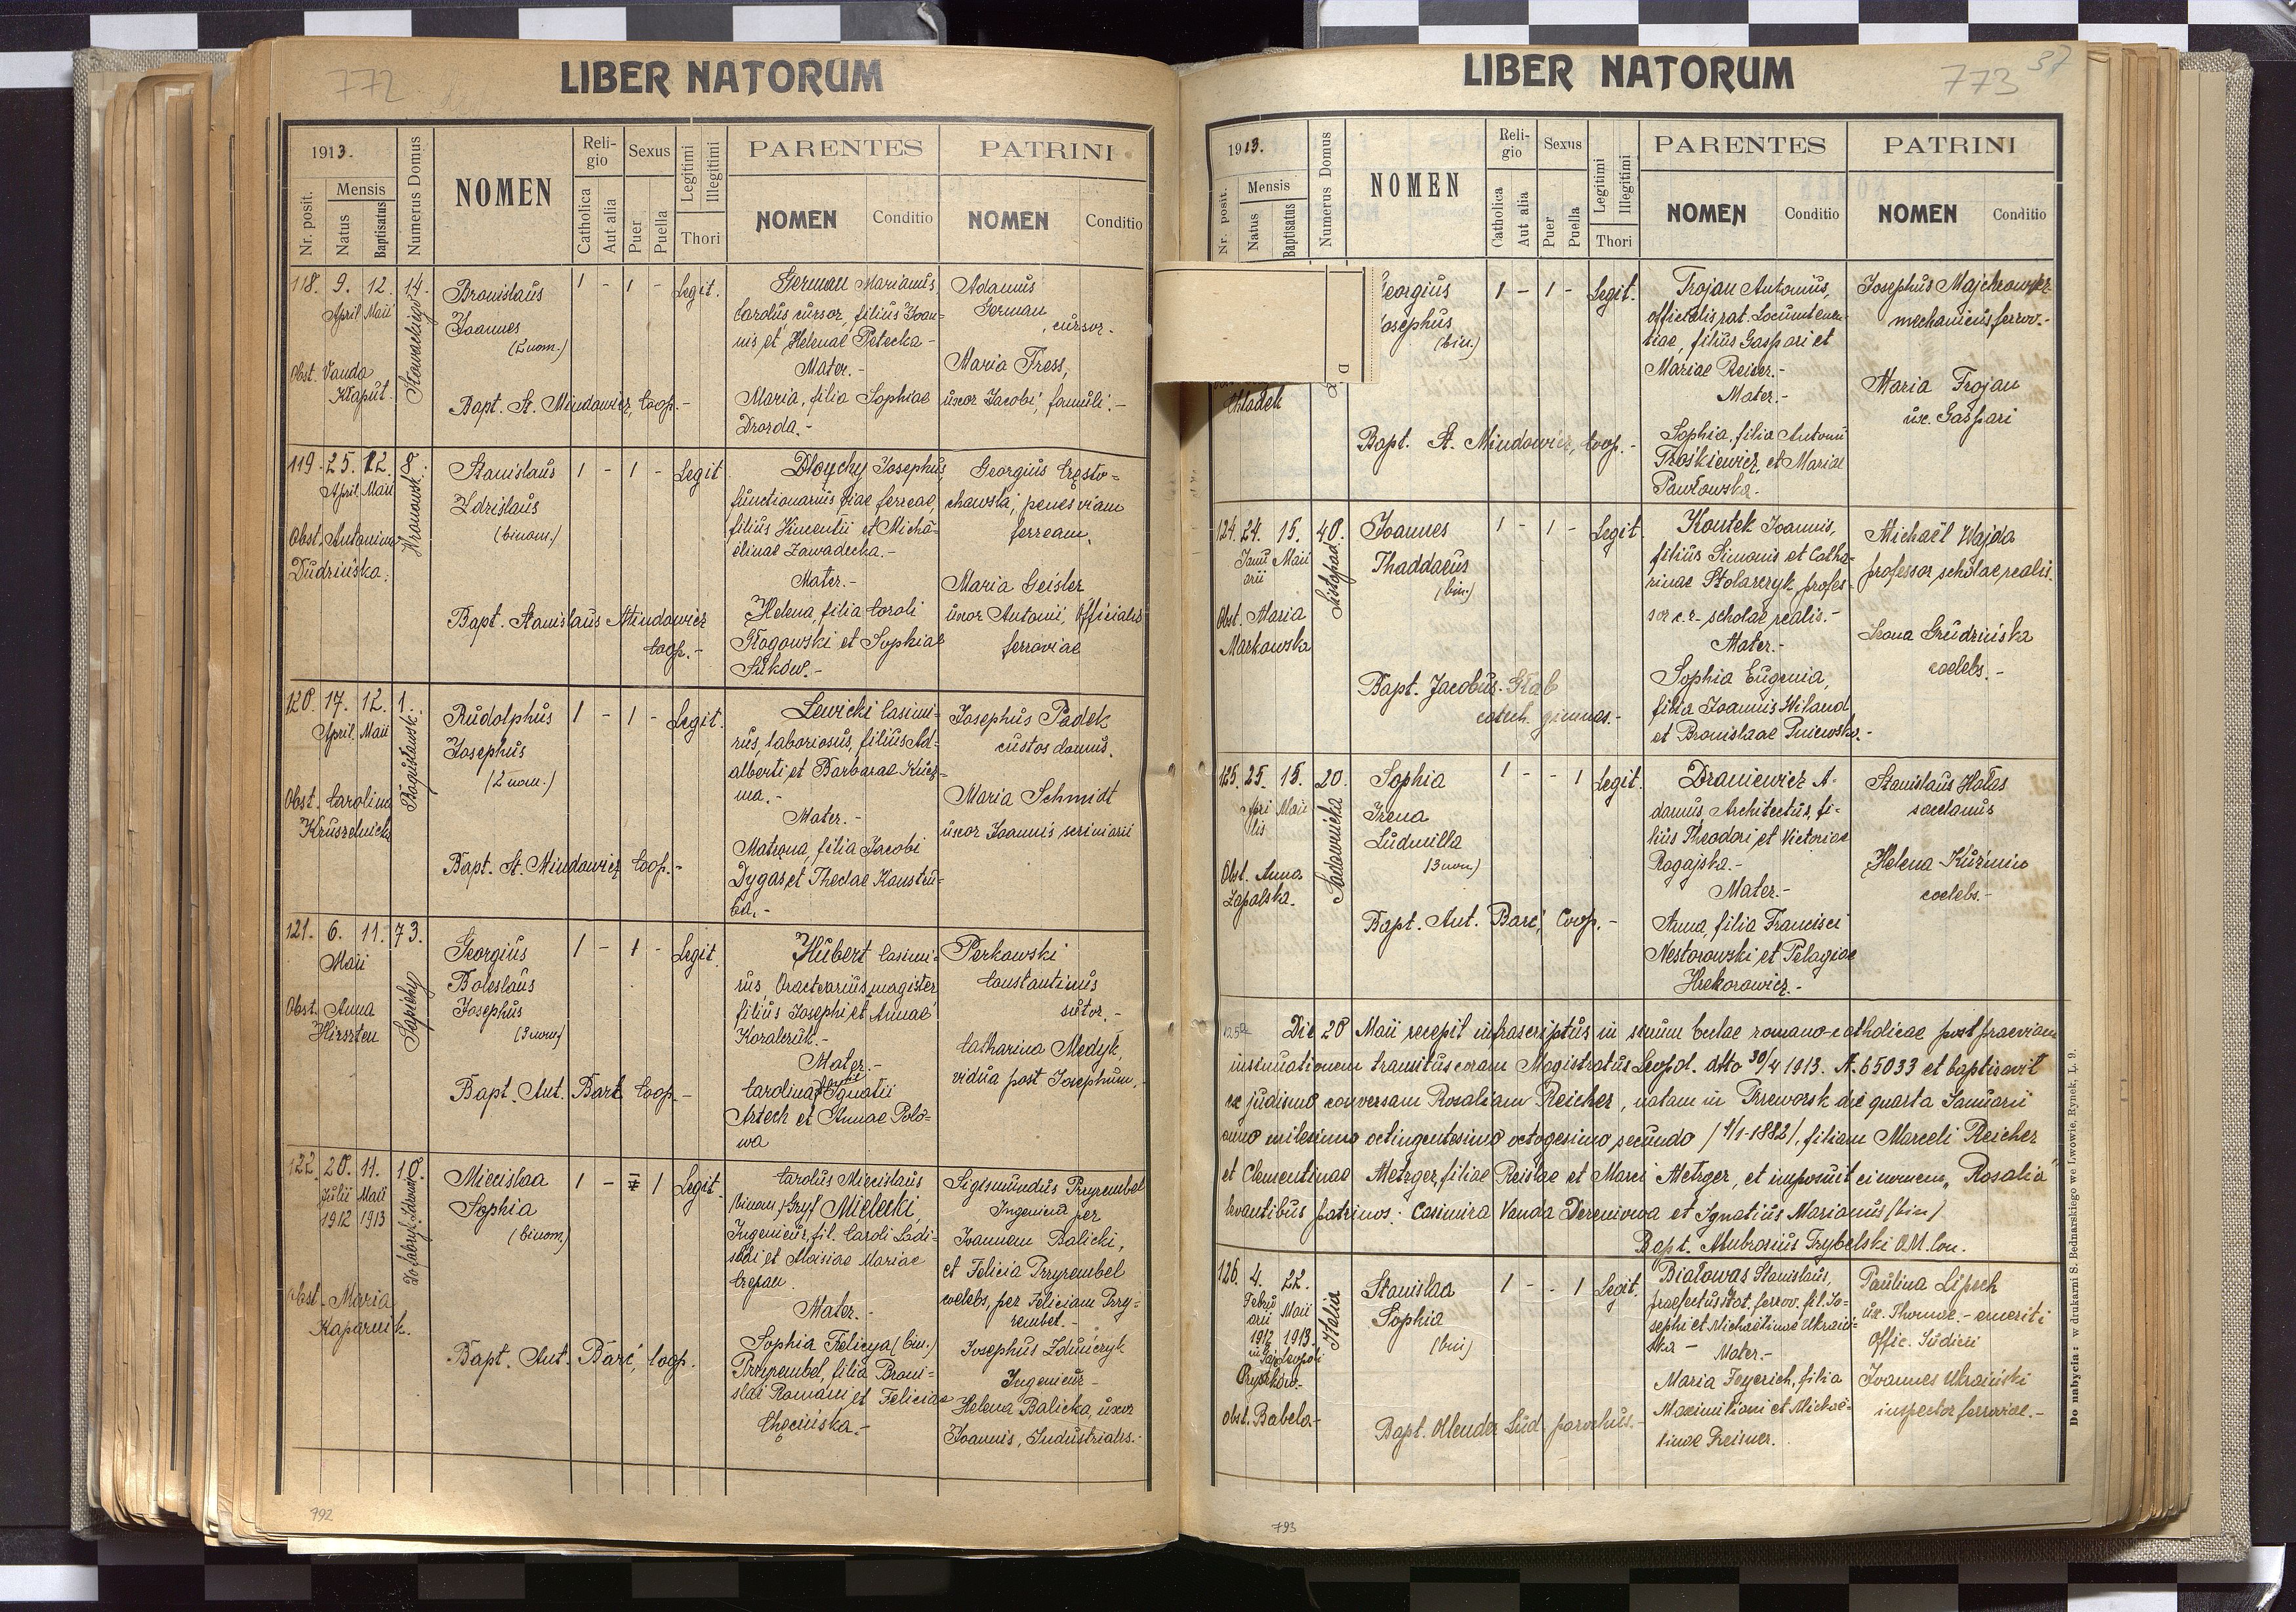 772
LIBER NATORUM
1913.
Nr. posit.
Mensis
Natus
Baptisatus
Numerus Domus
NOMEN
Religio
Catholica
Aut alia
Sexus
Puer
Puella
Legitimi
Illegitimi
Thori
PARENTES
NOMEN
Conditio
PATRINI
NOMEN
Conditio
118. 9. 12. 14.
April Maii
Obst. Vanda
Kłaput.
Bronislaus
Joannes
(2 nom.)
Bapt. St. Mindowicz, Coop.-
1 - 1 - Legit.
German Marianus,
Carolus cursor, filius Joan-
nis et Helenae Petecka -
Mater.-
Maria, filia Sophiae
Drozda.-
Adamus
German, cursor.-
Maria Tress,
uxor Jacobi, famuli.-
119. 25. 12. 8.
April Maii
Obst. Antonina
Dudzińska.
Stanislaus
Zdzislaus
(binom.)
Bapt. Stanislaus Mindowicz
Coop.-
1 - 1 - Legit
Dłouchy Josephus,
functionarius viae ferreae,
et Micha-
elinae Zawadecka.-
Mater.-
Helena, filia Caroli
Głogowski et Sophiae
Sukow.-
Georgius Często-
chowski, penes viam
ferream.
Maria Geisler
uxor Antonii, Officialis
ferroviae
120. 17. 12. 1.
April. Maii
Obst. Carolina
Kruszelnicka
Rudolphus
Josephus
(2 nom.)
Bapt. St. Mindowicz Coop.-
1 - 1 - Legit.
Lewicki Casimi-
rus, laboriosus, filius Ad-
alberti et Barbarae Kuź-
ma.-
Mater.-
Matrona, filia Jacobi
Dygas et Theclae Konstru-
ba.-
Josephus Padek
custos domus.
Maria Schmidt
uxor Joannis scriniarii
121. 6. 11. 73.
Maii
Sapiehy
Obst. Anna
Hirszten
Georgius
Boleslaus
Josephus
(3 nom)
Bapt. Ant. Barć Coop.-
1 - 1 - Legit.
Hubert Casimi-
rus, magister
filius Josephi et Annae
Koraleruk.-
Mater.-
Carolina Ignatii
Artech et Annae Polo-
wa
Perkowski
Constantinus
sutor.-
Catharina Medyk,
vidua post Josephum.
122. 20. 11. 10.
Julii Maii
1912 1913
Obst. Maria
Kaparnik.
Miecislaa
Sophia
(binom.)
Bapt. Ant. Barć, Coop.
1 - 1 Legit.
Carolus Miecislaus
(binom.) Gryf Mielecki,
Ingenieur, fil. Caroli Ladi-
slai et Aloisiae Mariae
Crepau.
Mater.-
Sophia Felicya (bin.)
Przyrembel, filia Broni-
slai Romani et Feliciae
Chęcińska.-
Sigismundus Przyrembel
Ingenieur per
Joannem Balicki,
et Felicia Przyrembel
coelebs, per Feliciam Przy-
rembel.-
Josephus Zduńczyk
Ingenieur -
Helena Balicka, uxor
Joannis, Industrialis.-
792
773 37
LIBER NATORUM
1913.
Nr. posit.
Mensis
Natus
Baptisatus
Numerus Domus
NOMEN
Religio
Catholica
Aut alia
Sexus
Puer
Puella
Legitimi
Illegitimi
Thori
PARENTES
NOMEN
Conditio
PATRINI
NOMEN
Conditio
Chladek
Georgius
Josephus
(bin.)
Bapt. St. Mindowicz, Coop.-
1 - 1 - Legit.
Trojan Antonius,
officialis rat. Locumtenen-
tiae, filius Gaspari et
Mariae Reiser.-
Mater.-
Sophia, filia Antonii
Troskiewicz, et Mariae
Pawłowska.-
Josephus Majchrowicz
mechanicus ferrov.-
Maria Trojan
ux. Gaspari
124. 24. 15. 40.
Janu- Maii
arii
Listopad.
Obst. Maria
Markowska
Joannes
Thaddaeus
(bin.)
Bapt. Jacobus Głąb
catech. gimnas.-
1 - 1 - Legit.
Kontek Joannis,
filius Simonis et Catha-
rinae Stolarczyk, profes-
sor c.r. scholae realis.-
Mater.-
Sophia Eugenia,
filia Joannis Wiland
et Bronislaae Pniewska.-
Michaël Wajda
professor scholae realis.
Irena Grudzińska
coelebs.-
125. 25. 15. 20.
Apri- Maii
lis
Sadownicka
Obst. Anna
Zapalska.
Sophia
Irena
Ludmilla
(3 nom)
Bapt. Ant. Barć, Coop.-
1 - - 1 Legit.
Draniewicz A-
damus, Architectus, fi-
lius Theodori et Victoriae
Rogajska.-
Mater.-
Anna, filia Francisci
Nestorowski et Pelagiae
Hrekorowicz.-
Stanislaus Hałas
sacelanus
Helena Kuźmin
coelebs.-
125a Die 20 Maii recepit infrascriptus in sinum Eccl​ae romano-catholicae post praeviam
insinuationem transitus coram Magistratus Leopol. dtto 30/4 1913. N. 65033 et baptisavit
ex judismo conversam Rosaliam Reicher, natam in Przeworsk die quarta Januarii
anno milesimo octingentesimo octogesimo secundo /4/1-1882/, filiam Marceli Reicher
et Clementinae Metzger, filiae Reislae et Marci Metzger, et imposuit ei nomen „Rosalia"
levantibus patrinos: Casimira Vanda et Ignatius Marianus (bin)
Bapt. Ambrosius Trybelski O.M. Con.
126. 4. 22.
Febru- Maii
arii
1912 1913.
Obst. Babela.-
Italia
Stanislaa
Sophia
(bin)
Bapt. Ollender Lud. parochus.-
1 - - 1 Legit.
Białowąs Stanislaus,
praefectus stat. ferrov. fil. Jo-
sephi et Michaelinae Ukraiń-
ska - Mater.-
Maria Feyerich, filia
Maximiliani et Michae-
linae Preisner.
Paulina Lipsch
ux. Thomae.- emeriti
Offic. Judicii
Joannes Ukraiński
inspector ferroviae.-
Do nabycia: w drukarni S. Bednarskiego we Lwowie, Rynek, L. 9.
793